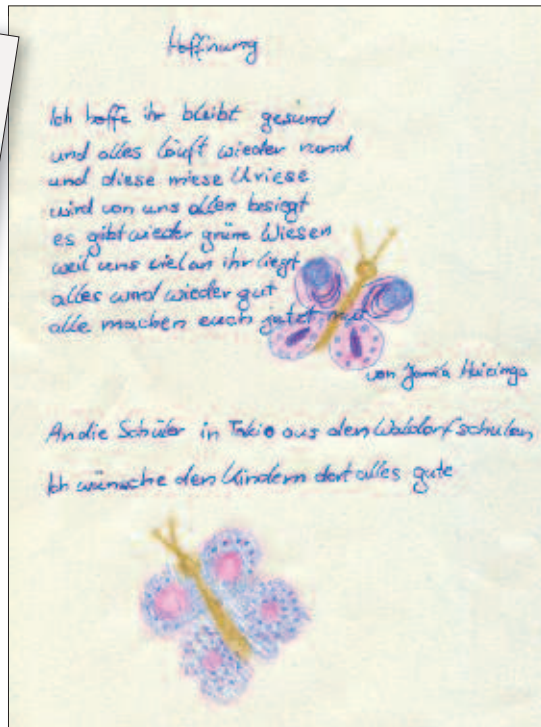 Hoffnung
Ich hoffe ihr bleibt gesund
und alles läuft wieder rund
und diese miese Kriese
wird von uns allen besiegt
es gibt wieder grüne Wiesen
weil uns viel an ihr liegt
alles wird wieder gut
alle machen euch jetzt mut
von Jamila Huizinga
An die Schüler in Tokio aus den Waldorfschulen
Ich wünsche den Kindern dort alles gute